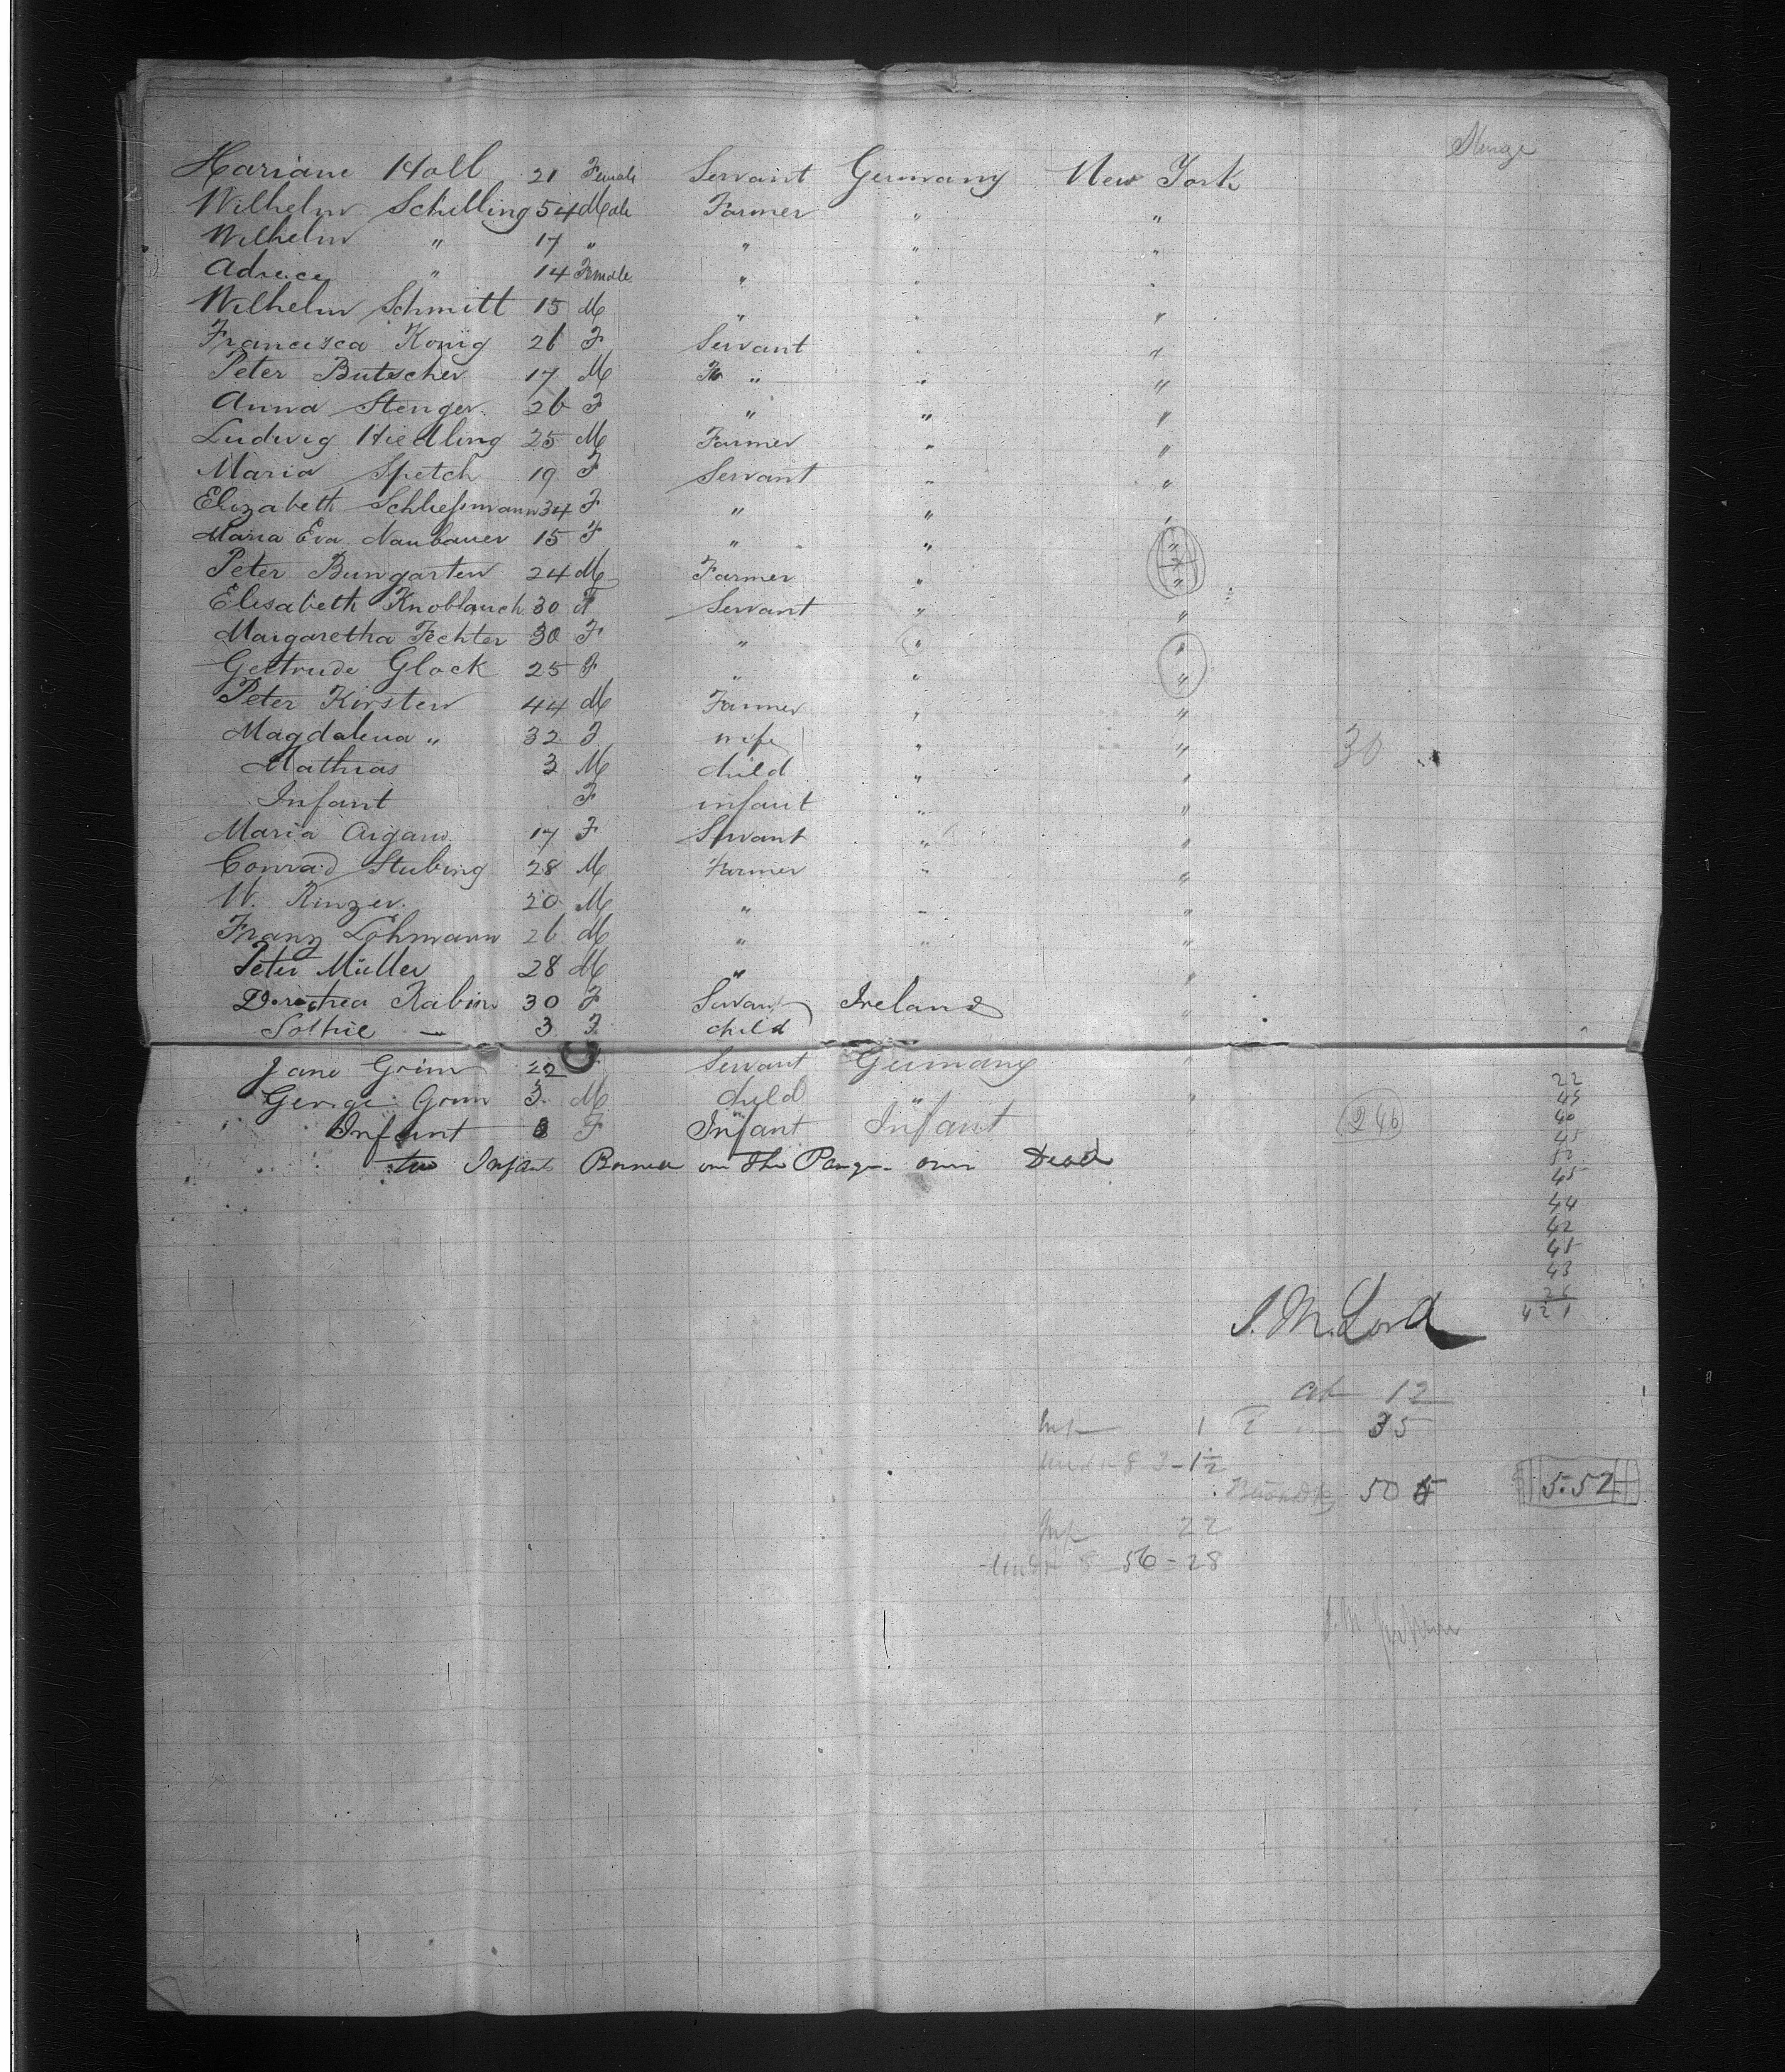 Hariane Holl 21 Female Servant Germany New York
Wilhelm Schilling 54 Male Farmer " "
Wilhelm " 17 " " " "
" 14 Female " " "
Wilhelm Schmitt 15 M " " "
Francisca König 26 F Servant " "
Peter Butscher 17 M " " "
Anna Stenger 26 F " " "
Ludwig Hiedling 25 M Farmer " "
Maria Spetch 19 F Servant " "
Elizabeth Schließmann 34 F " " "
Maria Eva Naubauer 15 F " " "
Peter Bungarten 24 M Farmer " "
Elisabeth Knoblauch 30 F Servant " "
Margaretha Fechter 30 F " " "
Gertrude Glock 25 F " " "
Peter Kirsten 44 M Farmer " "
Magdalena " 32 F wife " " 30
Mathias 3 M child " "
Infant F infant " "
Maria 17 F Servant " "
Conrad Stubing 28 M Farmer " "
W. Rinzer 20 M " " "
Franz Lohmann 26 M " " "
Peter Müller 28 M " "
Dorothea Rabin 30 F Servant Ireland "
Sothie — 3 F child
Jane Grim 22 Servant Germany "
George Grim 3 M child " "
Infant F Infant Infant 246
two Infants on the Dead
22
45
40
45
45
44
42
45
43
26
421
J. M. Lord
12
1 35
under 8 3 - 1½
50 5.52
Inf 22
under 8 56 = 28